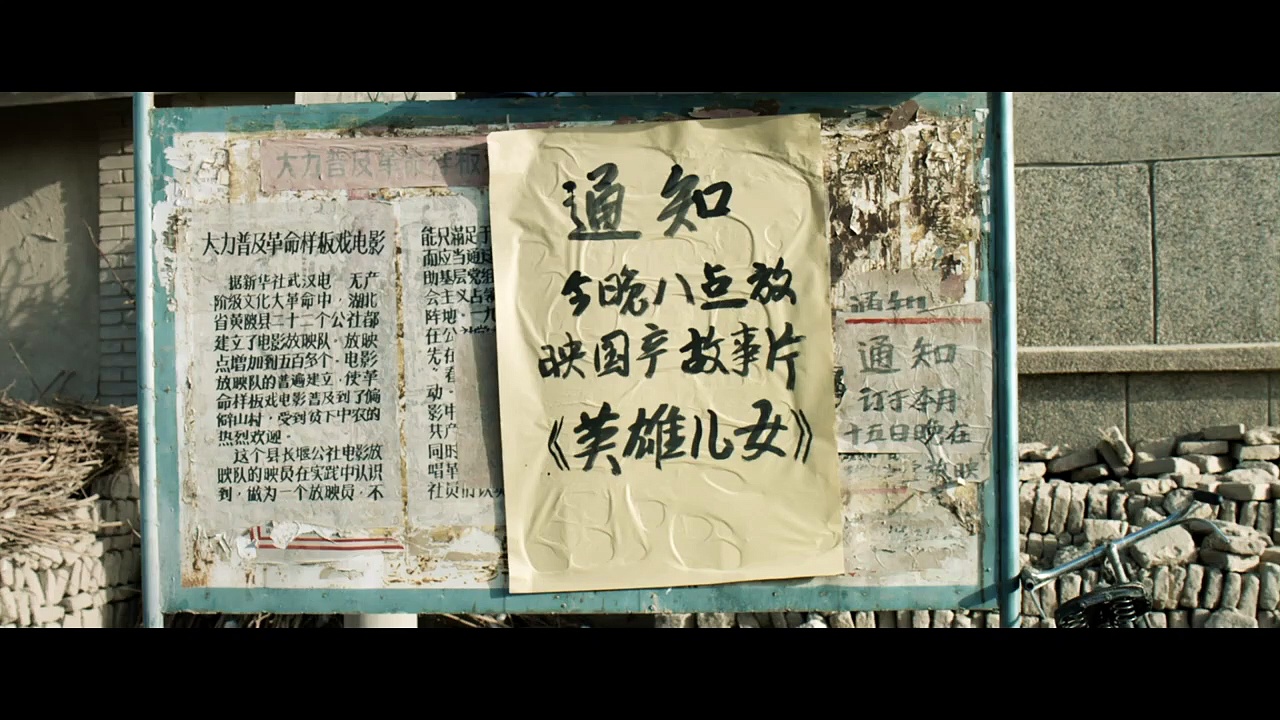 大力普及革命样板
大力普及革命样板戏电影
据新华社武汉电 无产
阶级文化大革命中，湖北
省黄陂县二十二个公社都
建立了电影放映队。放映
点增加到五百多个。电影
放映队的普遍建立，使革
命样板戏电影普及到了偏
僻山村，受到贫下中农的
热烈欢迎。
这个县长堰公社电影放
映队的映员在实践中认识
到，做为一个放映员，不
能只满足于
而应当通过
助基层党组
会主义占领
阵地。一九
在公
先
动。
影中
共产
同时
唱革
社员们
通知
今晚八点放
映国产故事片
《英雄儿女》
通知
通知
订于本月
十五日晚在
放映